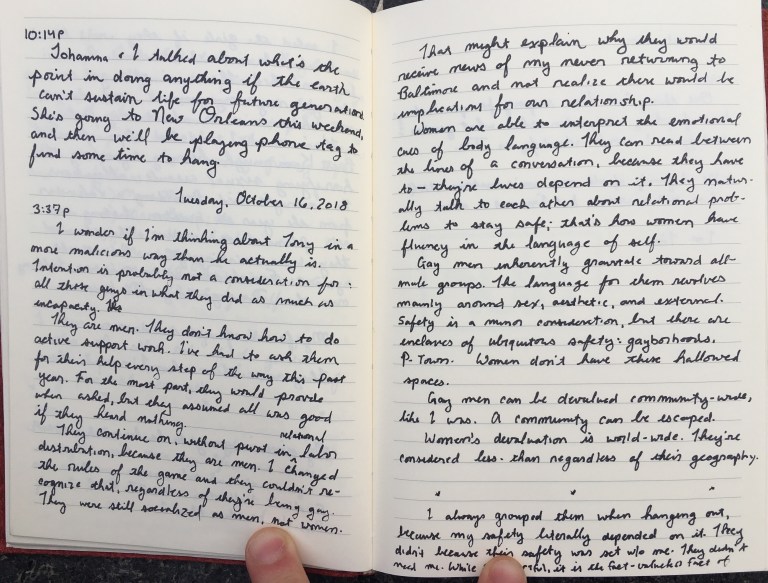 10:14P
Johanna & I talked about what's the
point in doing anything if the earth
can't sustain life for future generations.
She's going to New Orleans this weekend,
and then we'll be playing phone tag to
find some time to hang.
Tuesday, October 16, 2018
3:37P
I wonder if I'm thinking about Tony in a
more malicious way than he actually is.
Intention is probably not a consideration for
all those guys in what they did as much as
incapacity. The
They are men. They don't know how to do
active support work. I've had to ask them
for their help every step of the way this past
year. For the most part, they would provide
when asked, but they assumed all was good
if they heard nothing.
They continue on, without pivot in relational labor
distribution, because they are men. I changed
the rules of the game and they couldn't re-
cognize that, regardless of they're being gay.
They were still socialized as men, not women.
That might explain why they would
receive news of my never returning to
Baltimore and not realize there would be
implications for our relationship.
Women are able to interpret the emotional
cues of body language. They can read between
the lines of a conversation, because they have
to – they're lives depend on it. They natur-
ally talk to each other about relational prob-
lems to stay safe; that's how women have
fluency in the language of self.
Gay men inherently gravitate toward all-
male groups. The language for them revolves
mainly around sex, aesthetic, and external.
Safety is a minor consideration, but there are
enclaves of ubiquitous safety: gayborhoods,
P-Town. Women don't have these hallowed
spaces.
Gay men can be devalued community-wide,
like I was. A community can be escaped.
Women's devaluation is world-wide. They're
considered less-than regardless of their geography.
I always grouped them when hanging out,
because my safety literally depended on it. They
didn't because their safety was set w/o me. They didn't
need me. While it is the fact of